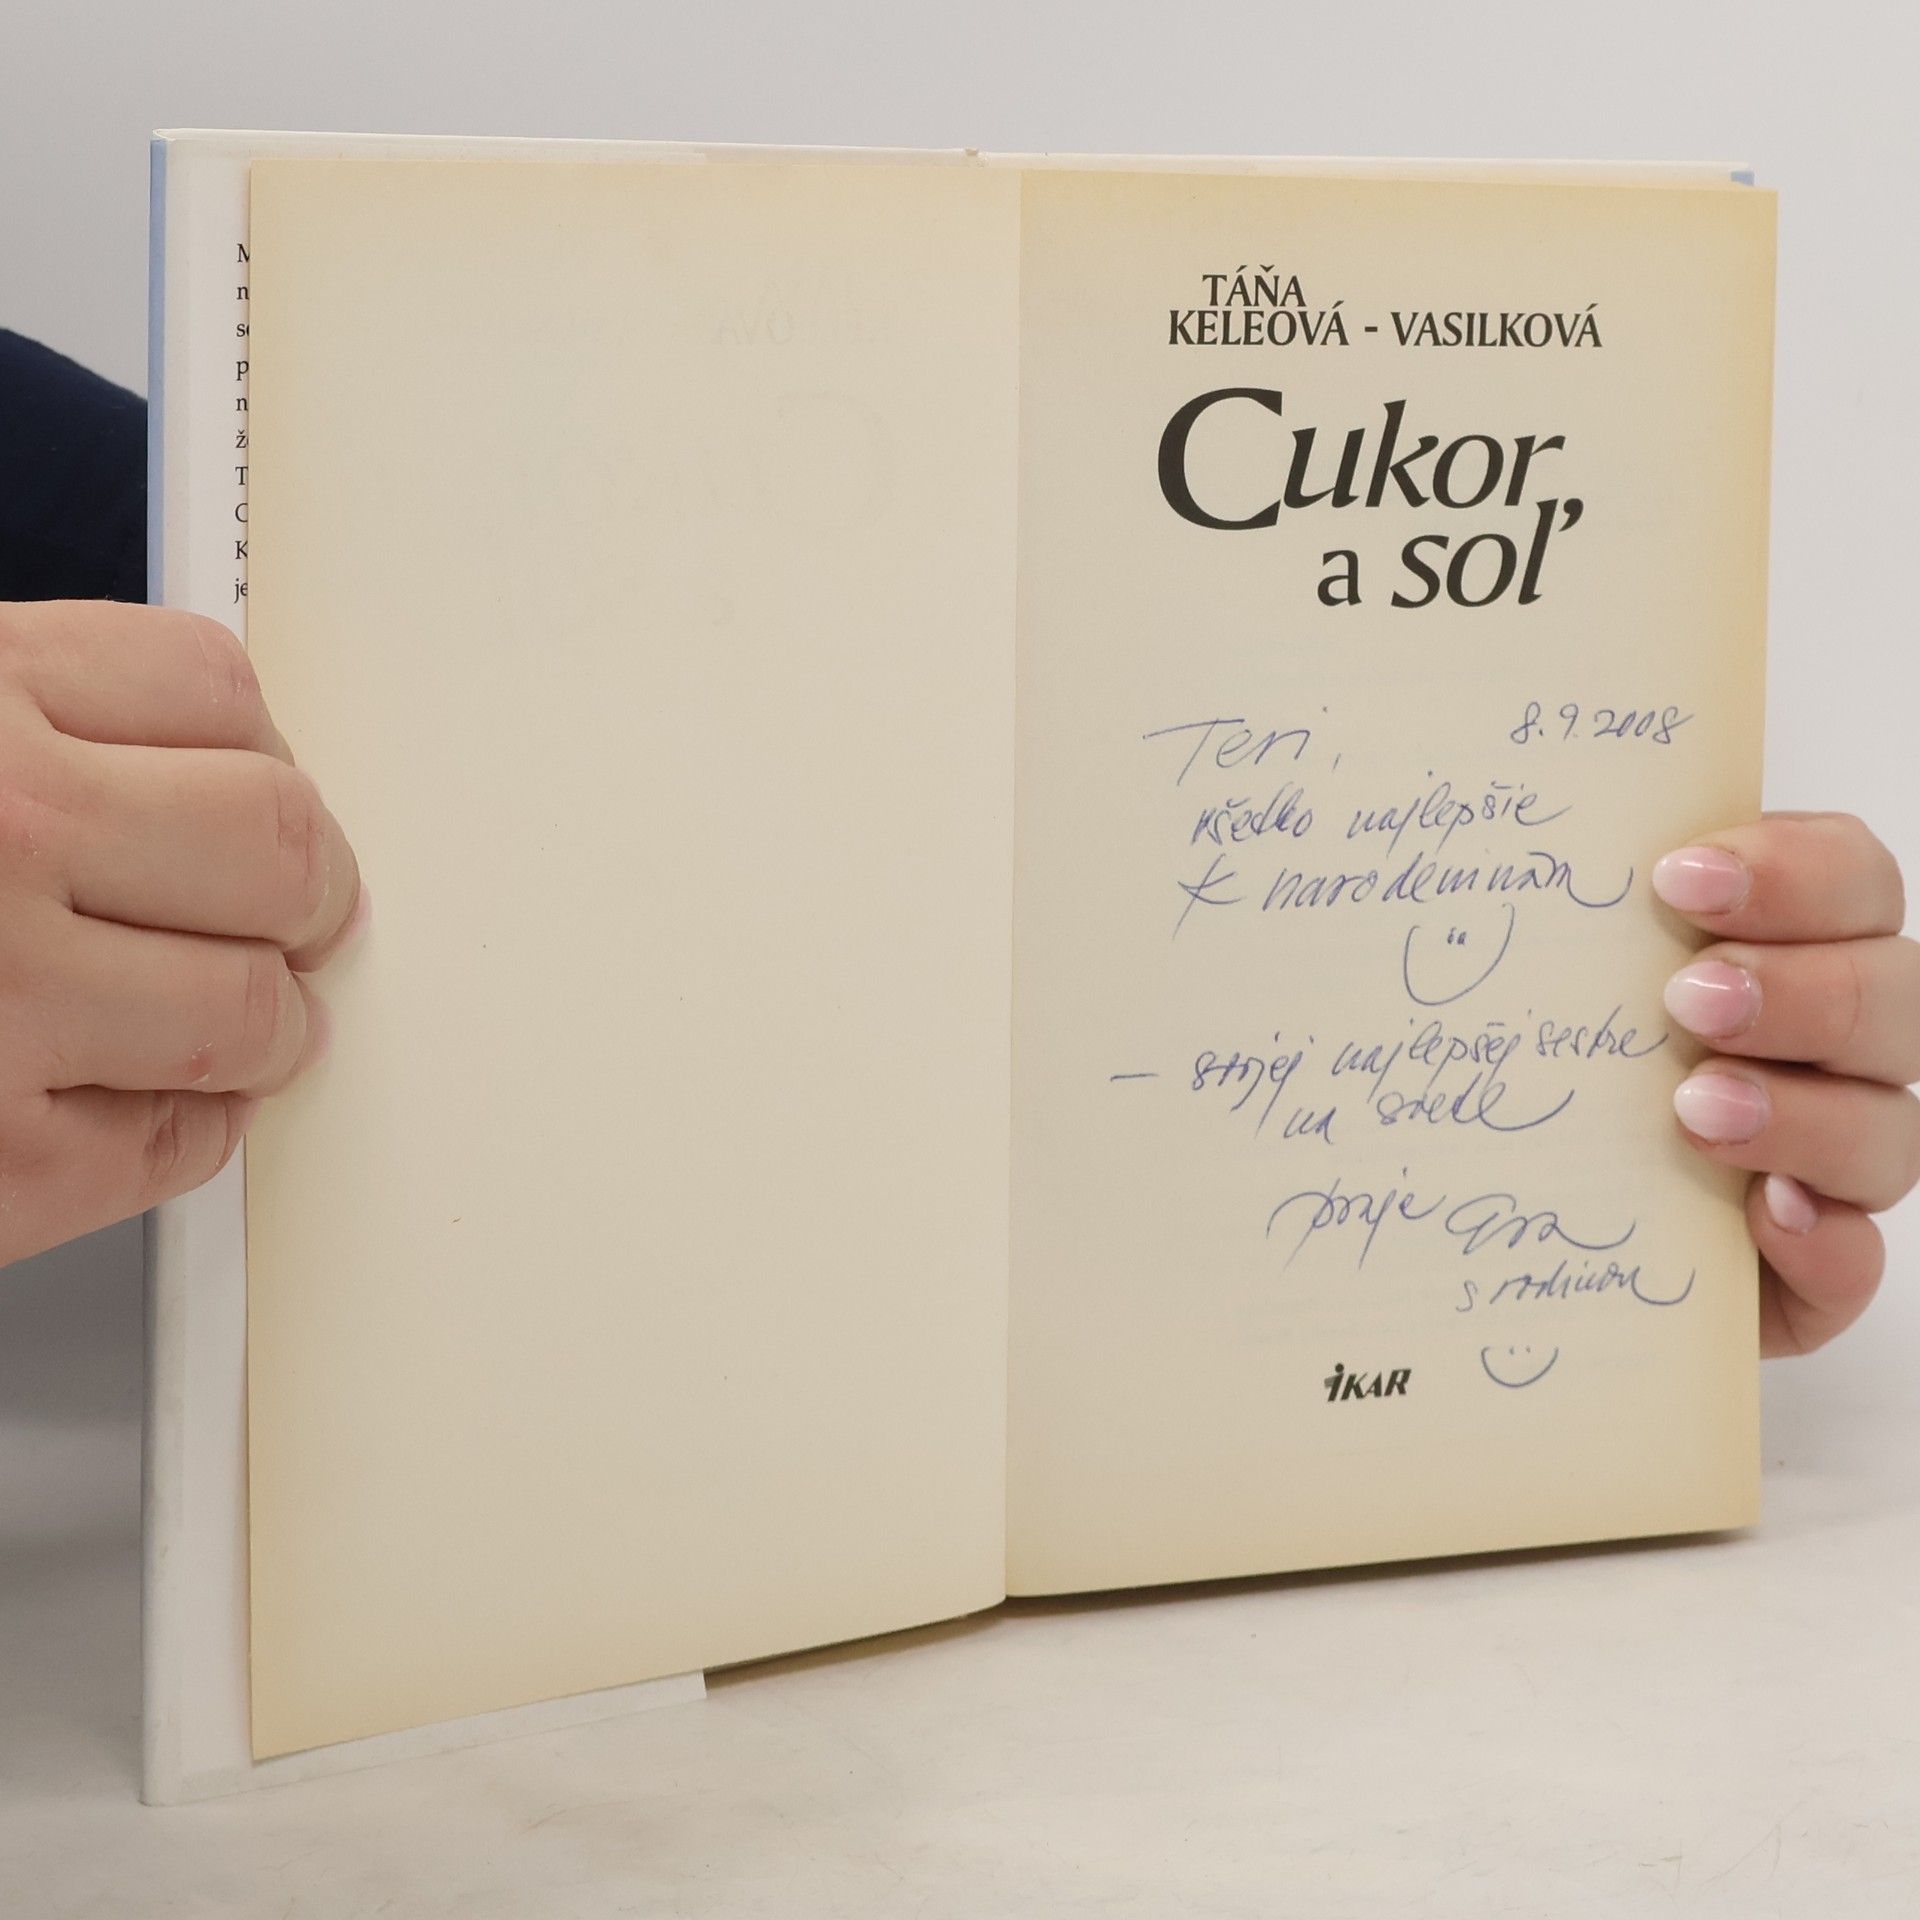 M
n
s
p
n
ž
T
K
je
TÁŇA
KELEOVÁ - VASILKOVÁ
Cukor
a soľ
Teri, 8.9.2008
všetko najlepšie
k narodeninám
- svojej najlepšej sestre
na svete
praje Eva
s rodinou
İKAR